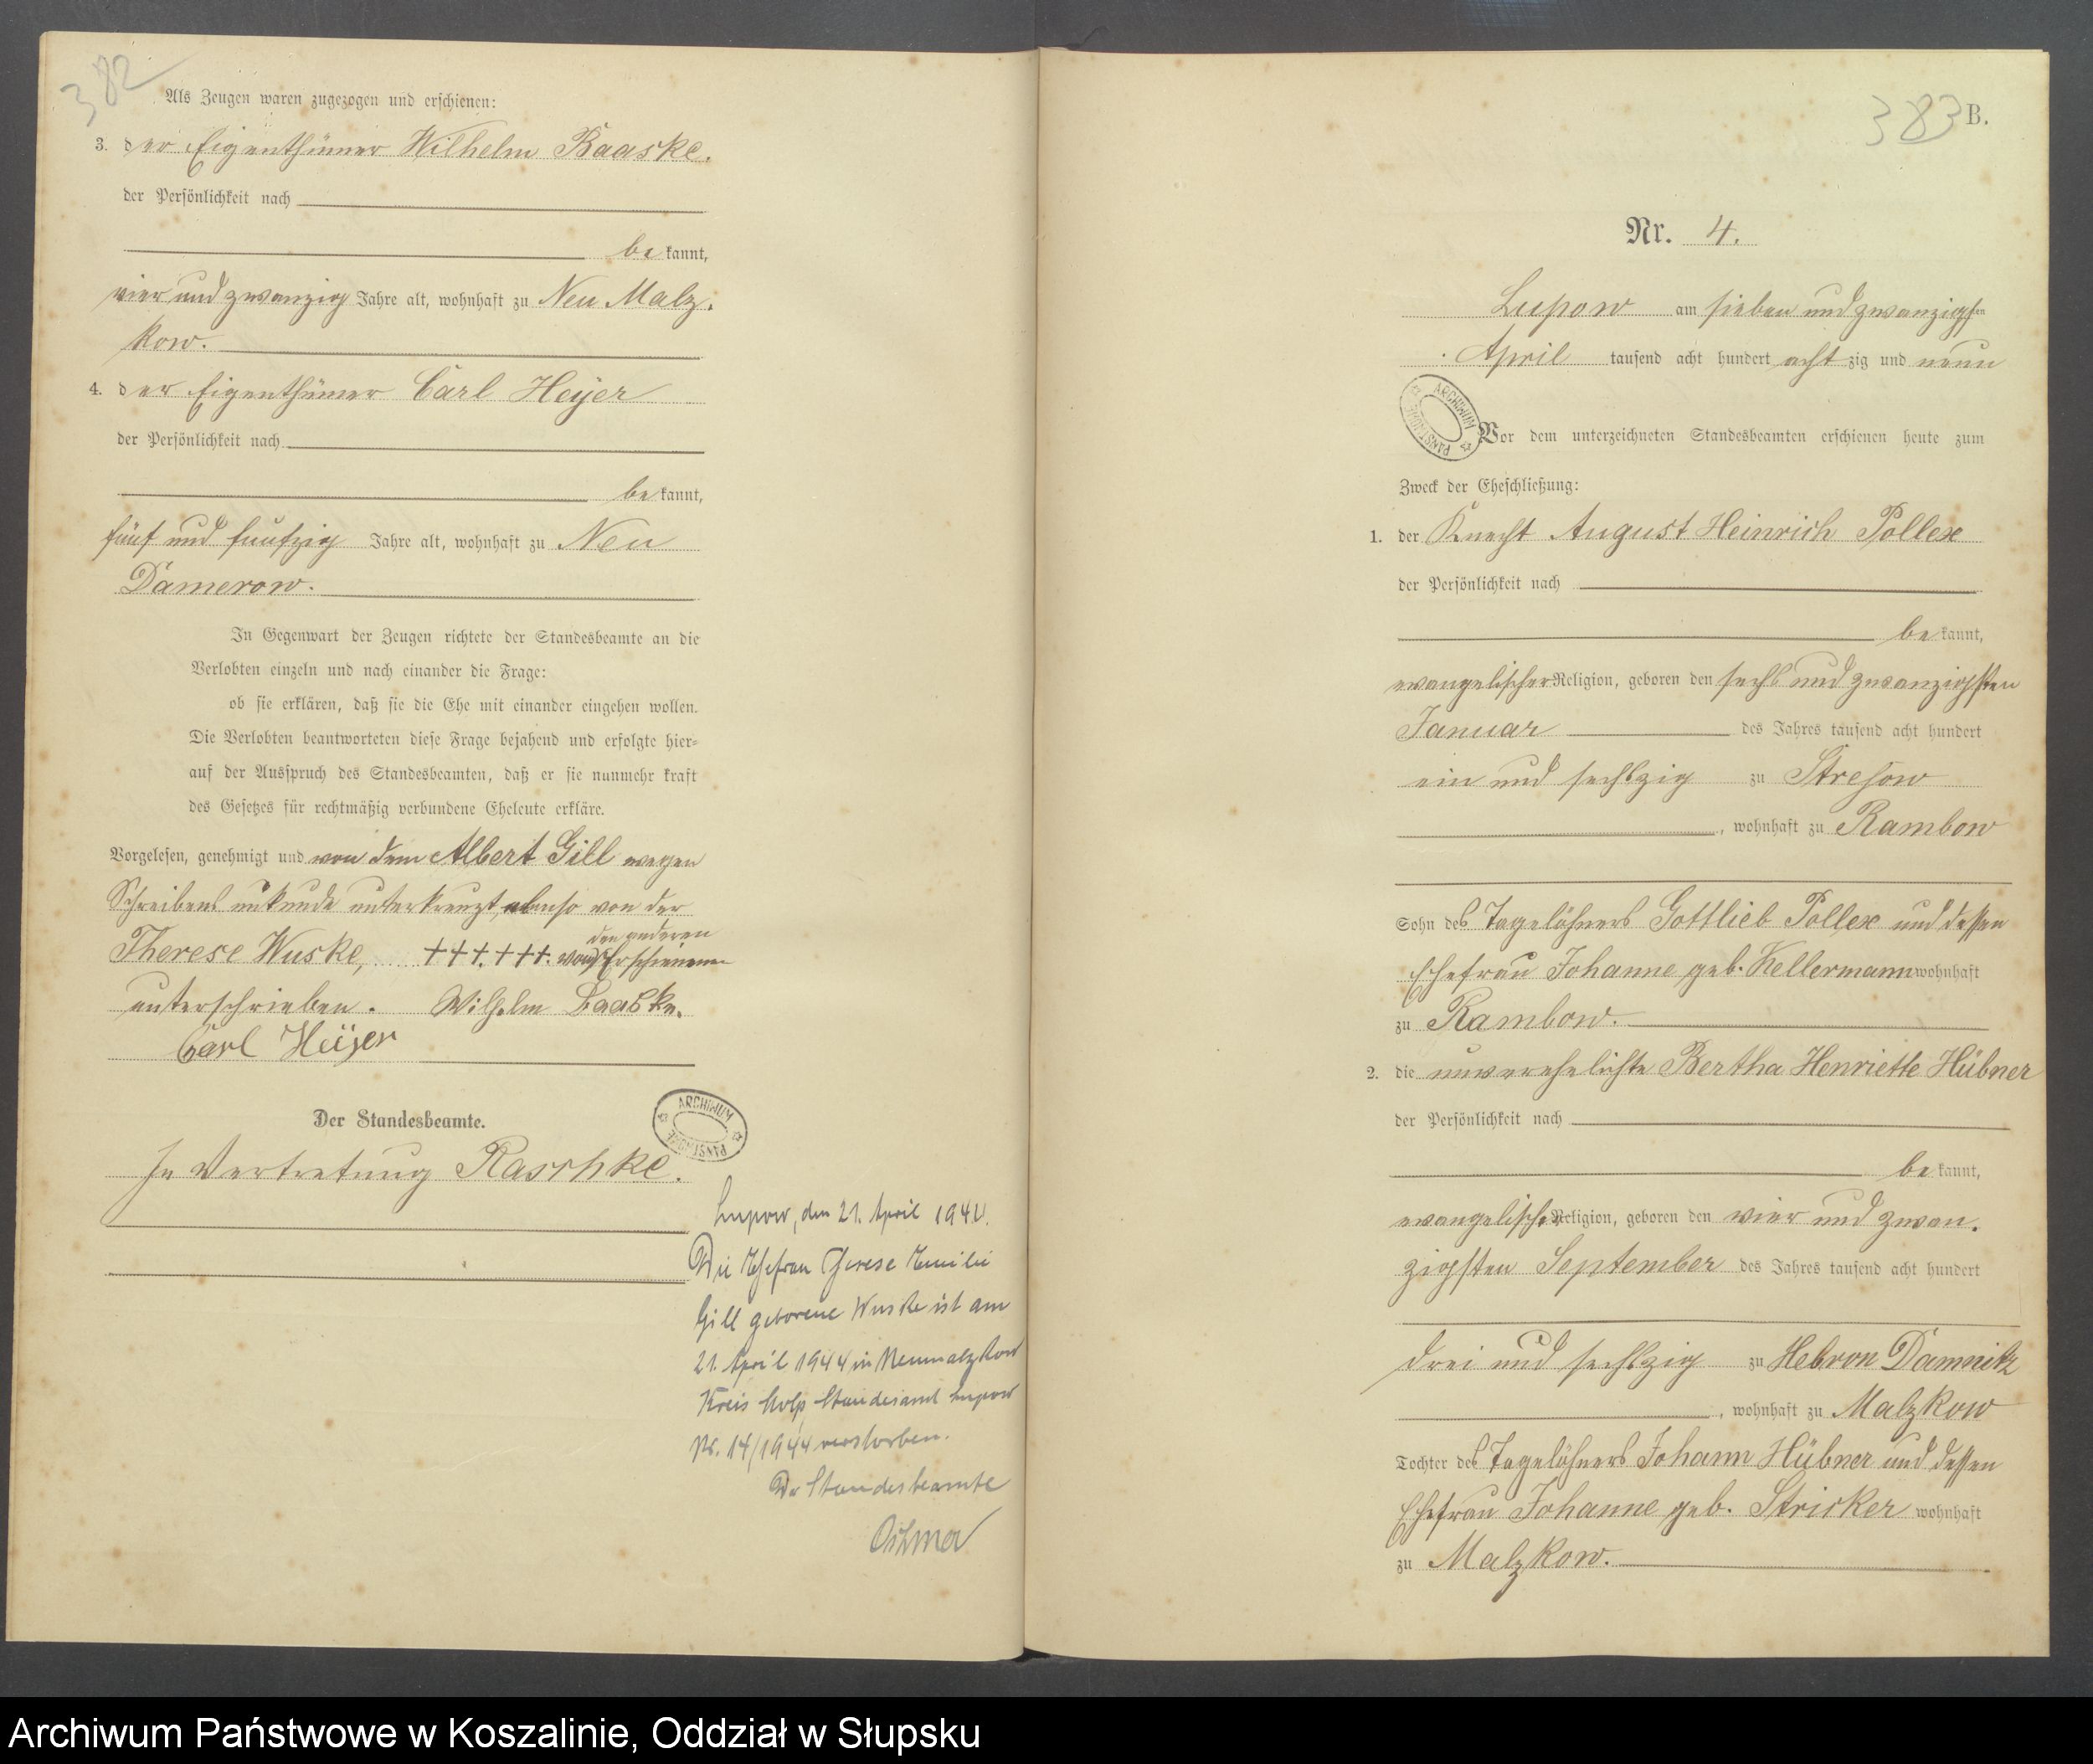 382
Als Zeugen waren zugezogen und erschienen:
3. der Eigenthümer Wilhelm Baaske.
der Persönlichkeit nach
bekannt,
vier und zwanzig Jahre alt, wohnhaft zu Neu Malz-
kow.
4. der Eigenthümer Carl Heÿer
der Persönlichkeit nach
bekannt,
fünf und funfzig Jahre alt, wohnhaft zu Neu
Damerow.
In Gegenwart der Zeugen richtete der Standesbeamte an die
Verlobten einzeln und nach einander die Frage:
ob sie erklären, daß sie die Ehe mit einander eingehen wollen.
Die Verlobten beantworteten diese Frage bejahend und erfolgte hier-
auf der Ausspruch des Standesbeamten, daß er sie nunmehr kraft
des Gesetzes für rechtmäßig verbundene Eheleute erkläre.
Vorgelesen, genehmigt und von dem Albert Gill wegen
Schreibens unkunde unterkreuzt, ebenso von der
den anderen
Therese Wuske, +++. +++. von Erschienenen
unterschrieben. Wilhelm Baaske.
Carl Heÿer
Der Standesbeamte.
In Vertretung Raschke.
ARCHIWUM PAŃSTWOWE
Lupow, den 21. April 1944.
Die Ehefrau Therese Emilie
Gill geborene Wuske ist am
21. April 1944 in Neumalzkow
Kreis Stolp Standesamt Lupow
Nr. 14/1944 verstorben.
Der Standesbeamte
383 B.
Nr. 4.
Lupow am sieben und zwanzigsten
April tausend acht hundert achtzig und neun
ARCHIWUM PAŃSTWOWE
Vor dem unterzeichneten Standesbeamten erschienen heute zum
Zweck der Eheschließung:
1. der Knecht August Heinrich Pollex
der Persönlichkeit nach
bekannt,
evangelischer Religion, geboren den sechs und zwanzigsten
Januar des Jahres tausend acht hundert
ein und sechszig zu Stresow
, wohnhaft zu Rambow
Sohn des Tagelöhners Gottlieb Pollex und dessen
Ehefrau Johanne geb. Kellermann wohnhaft
zu Rambow.
2. die unverehelichte Bertha Henriette Hübner
der Persönlichkeit nach
bekannt,
evangelischer Religion, geboren den vier und zwan-
zigsten September des Jahres tausend acht hundert
drei und sechszig zu Hebron Damnitz
, wohnhaft zu Malzkow
Tochter des Tagelöhners Johann Hübner und dessen
Ehefrau Johanne geb. Stricker wohnhaft
zu Malzkow.
Archiwum Państwowe w Koszalinie, Oddział w Słupsku